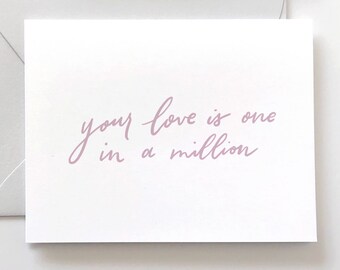 your love is one
in a million